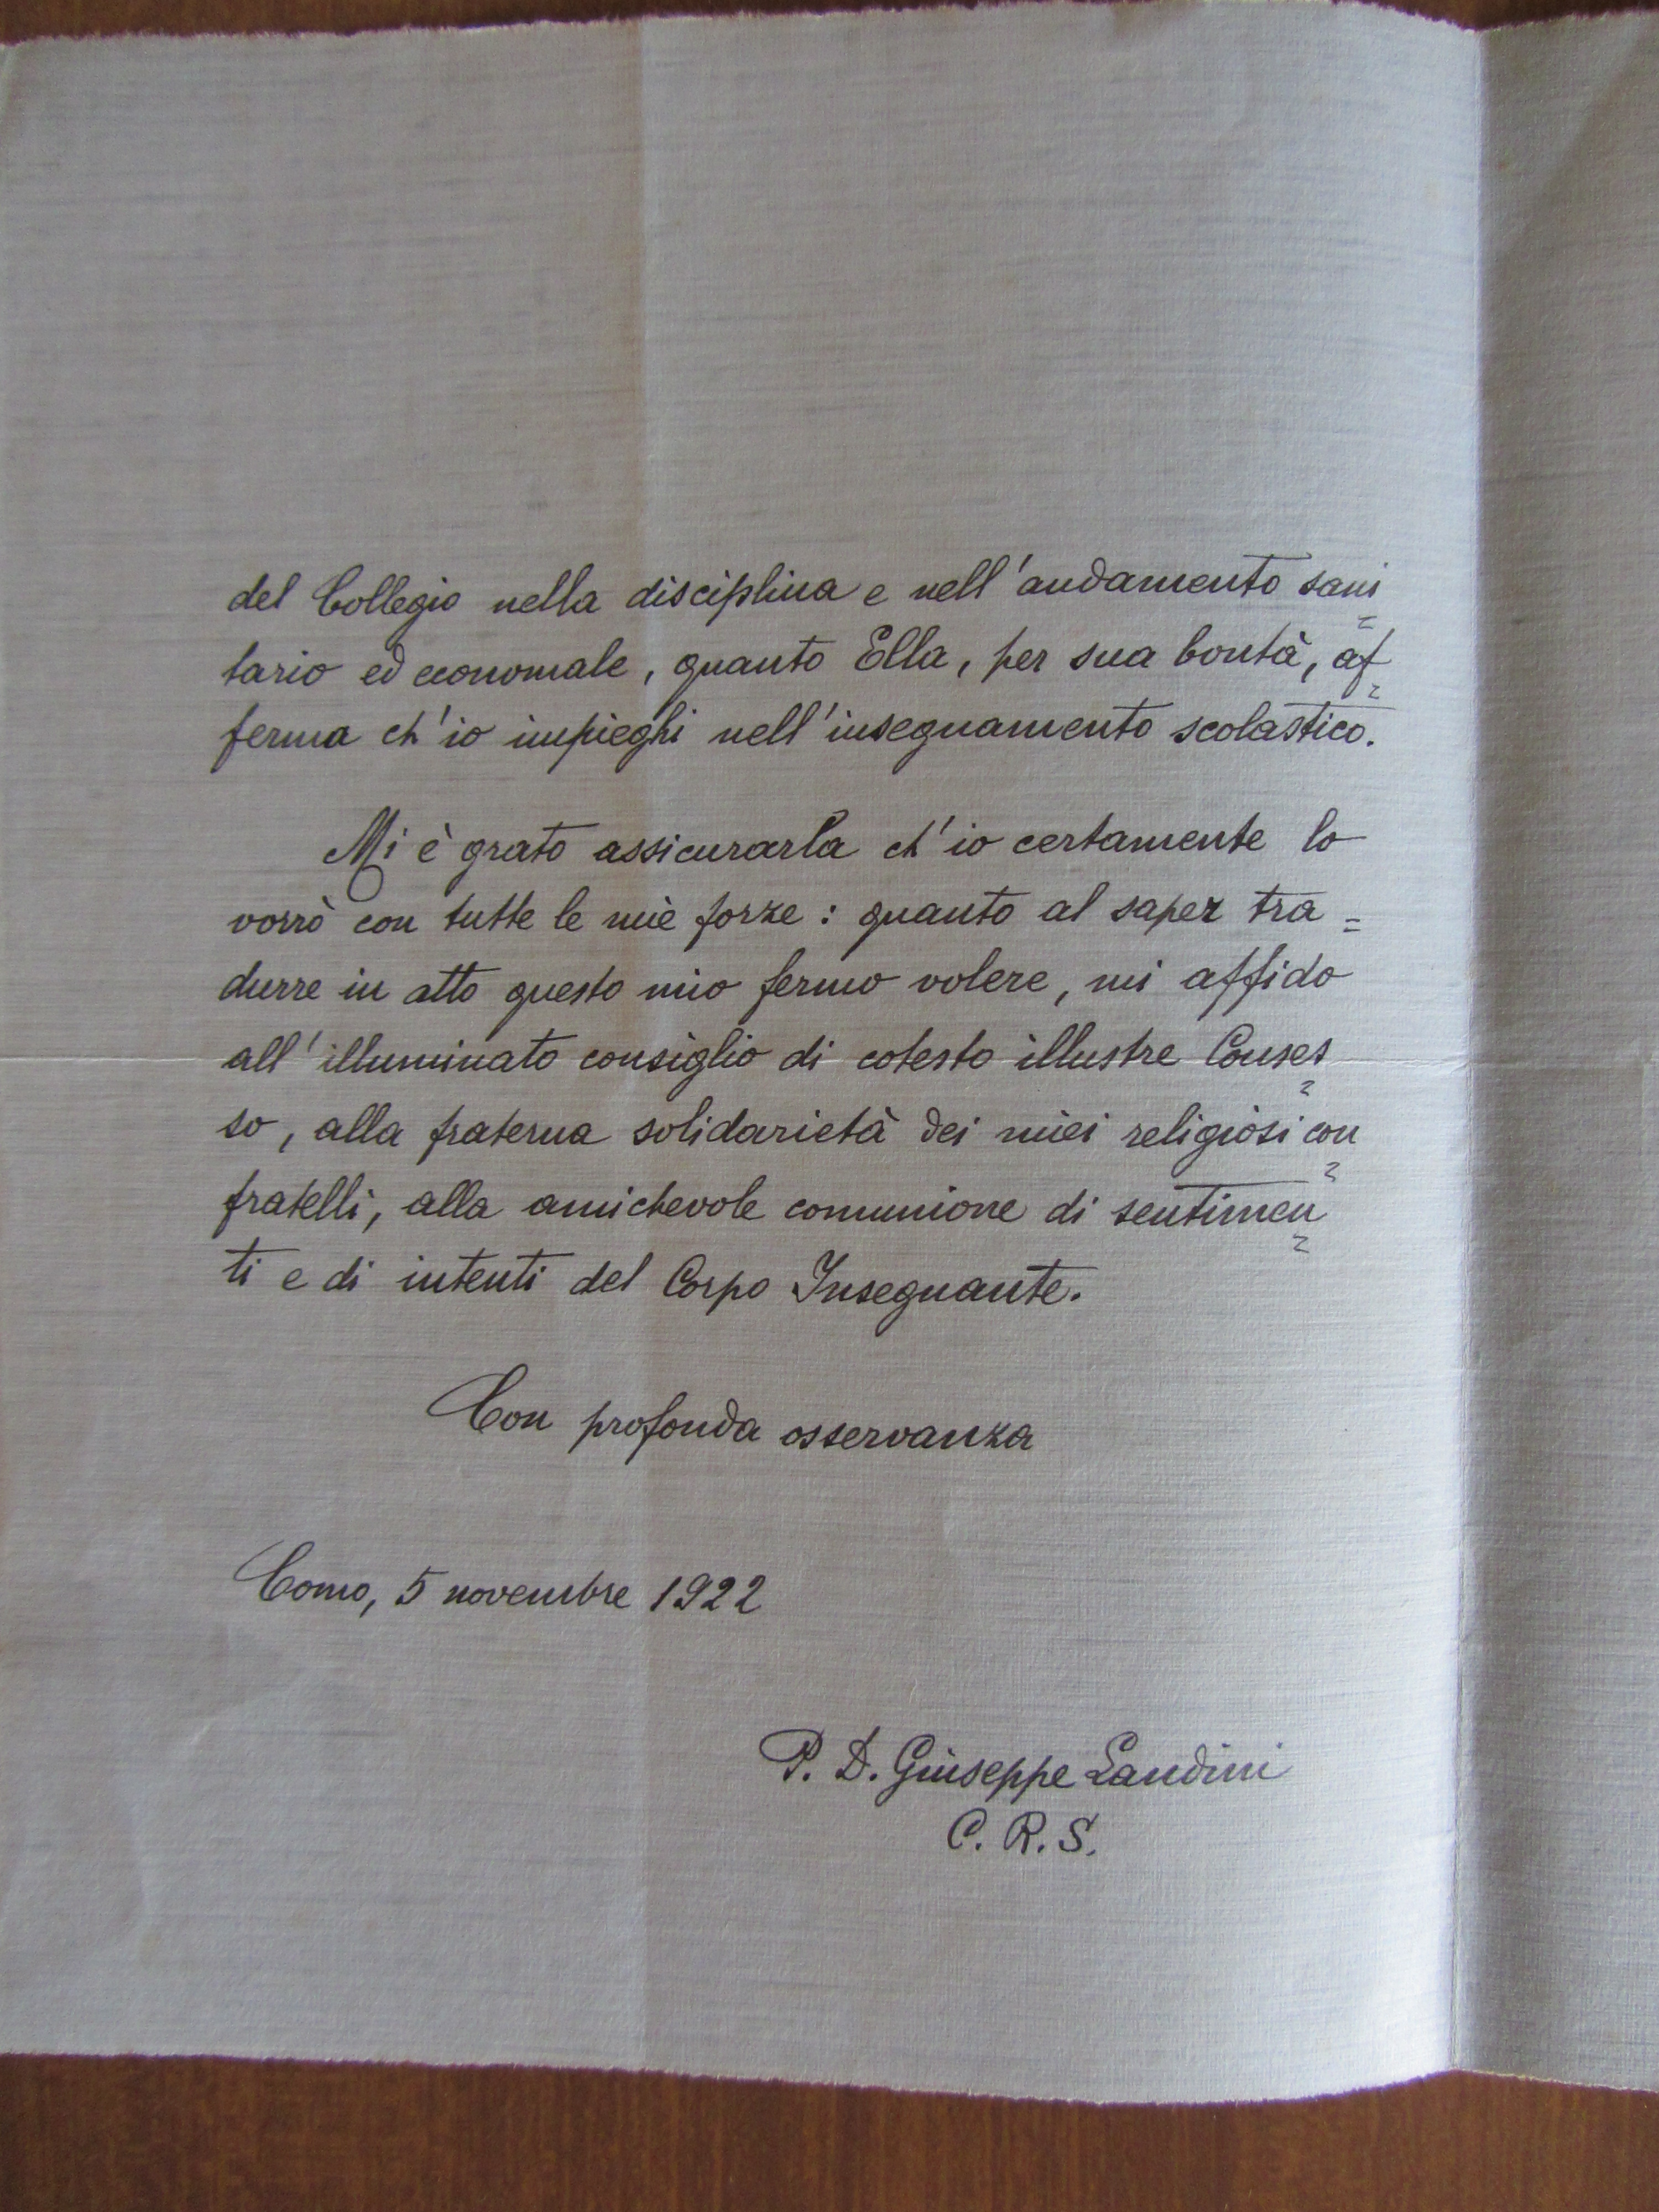 del Collegio nella disciplina e nell'andamento sani=
tario ed economale, quanto Ella, per sua bontà, af=
ferma ch'io impieghi nell'insegnamento scolastico.
Mi è grato assicurarla ch'io certamente lo
vorrò con tutte le mie forze: quanto al saper tra=
durre in atto questo mio fermo volere, mi affido
all'illuminato consiglio di cotesto illustre Conses=
so, alla fraterna solidarietà dei miei religiosi con=
fratelli, alla amichevole comunione di sentimen=
ti e di intenti del Corpo Insegnante.
Con profonda osservanza
Como, 5 novembre 1922
P. D. Giuseppe Landini
C. R. S.